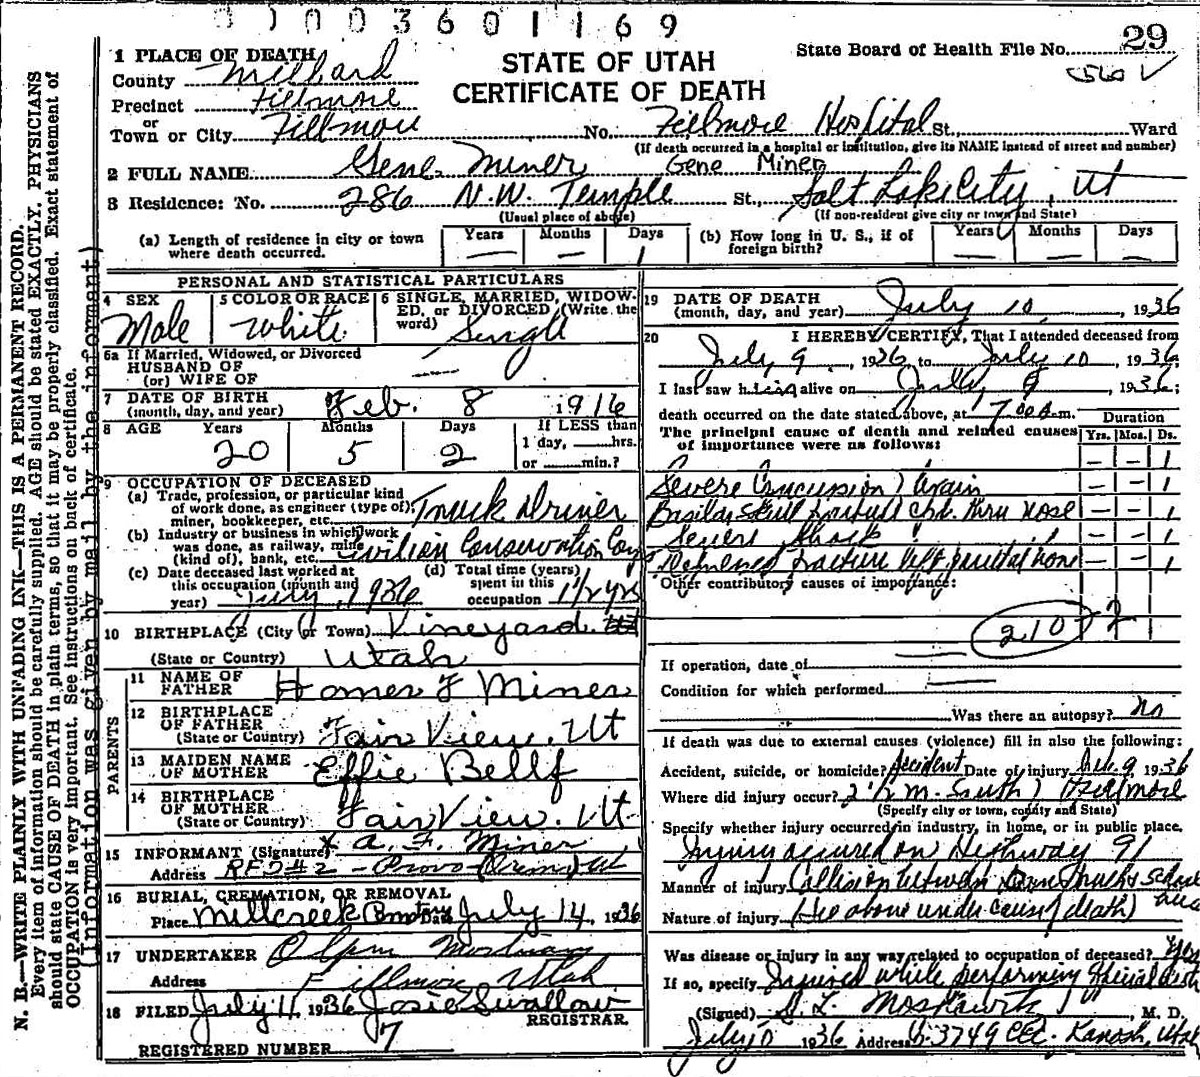 003601169
29
State Board of Health File No.
STATE OF UTAH
CERTIFICATE OF DEATH
1 PLACE OF DEATH
County Millard
Precinct Fillmore
or
Town or City Fillmore No. Fillmore Hospital St., Ward
(If death occurred in a hospital or institution, give its NAME instead of street and number)
2 FULL NAME Gene Miner Gene Miner
3 Residence: No. 286 N.W. Temple St., Salt Lake City, Ut
(Usual place of abode) (If non-resident give city or town and State)
(a) Length of residence in city or town where death occurred. Years — Months — Days 1
(b) How long in U. S., if of foreign birth? Years — Months — Days —
PERSONAL AND STATISTICAL PARTICULARS
4 SEX Male
5 COLOR OR RACE White
6 SINGLE, MARRIED, WIDOWED, OR DIVORCED (Write the word) Single
6a If Married, Widowed, or Divorced
HUSBAND OF
(or) WIFE OF
7 DATE OF BIRTH
(month, day, and year) Feb. 8 1916
8 AGE Years 20 Months 5 Days 2
If LESS than
1 day, hrs.
or min.?
9 OCCUPATION OF DECEASED
(a) Trade, profession, or particular kind of work done, as engineer (type of), miner, bookkeeper, etc. Truck Driver
(b) Industry or business in which work was done, as railway, mine (kind of), bank, etc. Civilian Conservation Corp
(c) Date deceased last worked at this occupation (month and year) July, 1936
(d) Total time (years) spent in this occupation 1 1/2 yrs
10 BIRTHPLACE (City or Town) Vineyard
(State or Country) Utah
PARENTS
11 NAME OF FATHER Homer F Miner
12 BIRTHPLACE OF FATHER
(State or Country) Fair View, Ut
13 MAIDEN NAME OF MOTHER Effie Bell
14 BIRTHPLACE OF MOTHER
(State or Country) Fair View, Ut
15 INFORMANT (Signature) x A. F. Miner
Address RFD #2 - Provo (Orem) Ut
16 BURIAL, CREMATION, OR REMOVAL
Place Millcreek Date July 14, 1936
17 UNDERTAKER Olpin Mortuary
Address Fillmore Utah
18 FILED July 11, 1936 Josie Swallow
REGISTRAR.
REGISTERED NUMBER 7
19 DATE OF DEATH
(month, day, and year) July 10, 1936
20 I HEREBY CERTIFY, That I attended deceased from
July 9, 1936 to July 10, 1936
I last saw him alive on July 9, 1936;
death occurred on the date stated above, at m.
The principal cause of death and related causes of importance were as follows:
Duration
Yrs. Mos. Ds.
Severe Concussion Brain — — 1
Basilar Skull fracture thru nose — — 1
Severe Shock " 1
Depressed fracture left parietal bone — — 1
Other contributory causes of importance:
210 2
If operation, date of
Condition for which performed
Was there an autopsy? No
If death was due to external causes (violence) fill in also the following:
Accident, suicide, or homicide? Accident Date of injury 9, 1936
Where did injury occur? 2 1/2 m. South Fillmore
(Specify city or town, county and State)
Specify whether injury occurred in industry, in home, or in public place.
Injury occured on Highway 91
Manner of injury Collision between
Nature of injury (See above under cause of death)
Was disease or injury in any way related to occupation of deceased? Yes
If so, specify Injured while performing official
(Signed) , M. D.
July 10 1936 Address Co. 3749 CCC. Kanosh, Utah
N. B.—WRITE PLAINLY WITH UNFADING INK—THIS IS A PERMANENT RECORD.
Every item of information should be carefully supplied. AGE should be stated EXACTLY. PHYSICIANS
should state CAUSE OF DEATH in plain terms, so that it may be properly classified. Exact statement of
OCCUPATION is very important. See instructions on back of certificate.
(Information was given by mail by the informant)